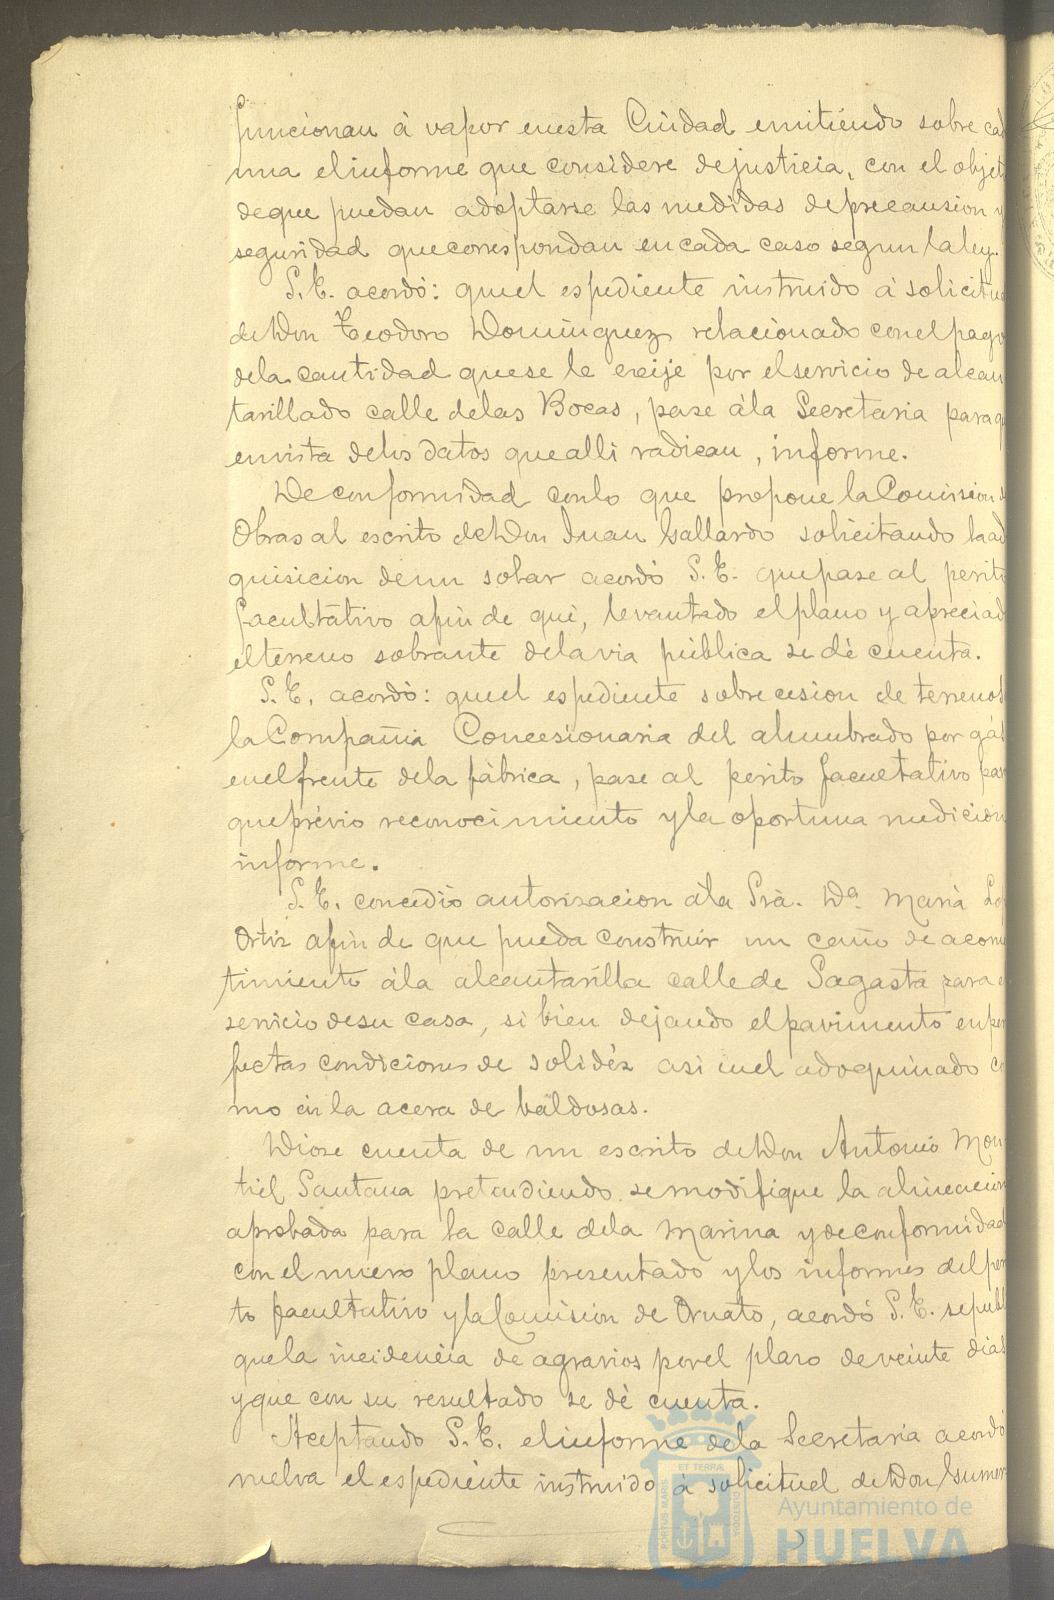 funcionan á vapor enesta Ciudad emitiendo sobre cad
una elinforme que considere dejusticia, con el objet
deque puedan adoptarse las medidas deprecausion y
seguridad quecorrespondan encada caso segun laley.
S.E. acordó: quel espediente instruido á solicitud
deDon Teodoro Dominguez relacionado conelpago
dela cantidad quese le exije por elservicio de alcan
tarillado calle delas Bocas, pase ála Secretaria para q
envista delos datos quealli radican, informe.
De conformidad conlo que propone laComision d
Obras al escrito deDon Juan Gallardo solicitando la ad
quisicion deun solar acordó S.E. quepase al perito
facultativo afin de que, levantado elplano y apreciad
elterreno sobrante delavia pública se dé cuenta.
S.E. acordó: quel espediente sobre cesion de terrenos
laCompañia Concesionaria del alumbrado por gás
enelfrente dela fábrica, pase al perito facultativo par
queprévio reconocimiento yla oportuna medicion
informe.
S.E. concedió autorizacion ála Srà. Dª. Maria Lo
Ortiz afin de que pueda construir un caño de acome
timiento ála alcantarilla calle de Sagasta para e
servicio desu casa, si bien dejando elpavimento enper
fectas condiciones de solidéz asi enel adoquinado co
mo en la acera de baldosas.
Diose cuenta de un escrito deDon Antonio Mon
tiel Santana pretendiendo se modifique la alineacion
aprobada para la calle dela Marina y deconformidad
con el nuevo plano presentado ylos informes del peri
to facultativo ylaComision de Ornato, acordó S.E. sepubli
quela incidencia de agravios porel plazo deveinte dias
yque con su resultado se dé cuenta.
Aceptando S.E. elinforme dela Secretaria acordó
vuelva el espediente instruido á solicitud deDon Gumer
PORTUS MARIS ET TERRÆ CUSTODIA
Ayuntamiento de
HUELVA